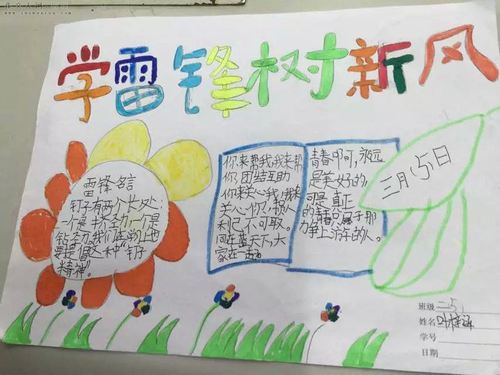 学雷锋树新风
雷锋名言
钉子有两个长处:
一个是挤劲,一个是
钻劲,我们在学习上也
要提倡这种“钉子
精神”。
你来帮我,我来帮
你,团结互助
你来关心我,我来
关心你,损人
利己不可取。
同在蓝天下,大
家在一起
青春啊,永远
是美好的,
可是真正
的青春,属于那
力争上游的人。
三月五日
班级
姓名
学号
日期